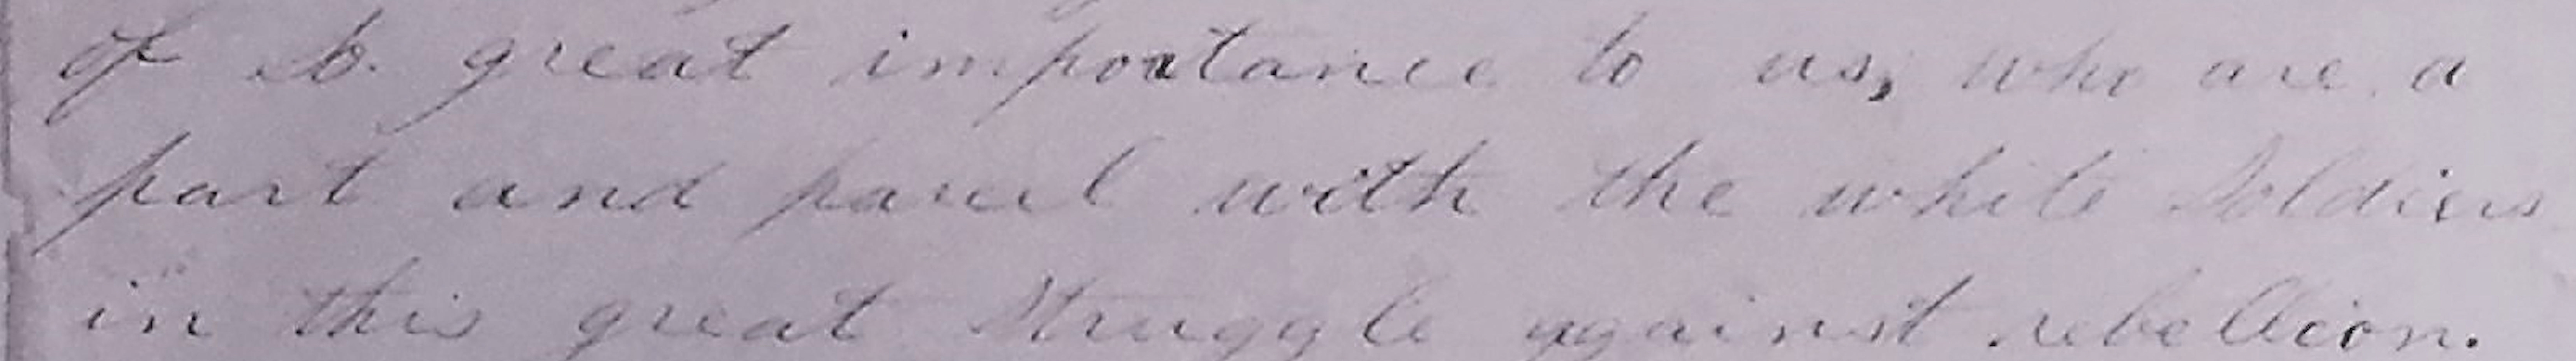 of great importance to us, who are a
part and parcel with the white Soldiers
in this great Struggle against rebellion.